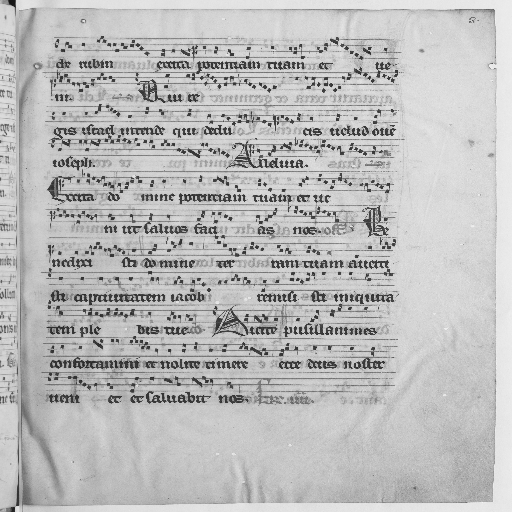 de rubin excita potentiam tuam et ue
ni Qui re
gis israel intende qui dedu cis uelud oue
ioseph. Alleluia.
Excita do mine potentiam tuam et ue
ni ut saluos faci as nos. Be
nedixi sti domine ter ram tuam auerti
sti captiuitatem iacob remisi sti iniquita
tem ple bis tue Dicite pusillanimes
confortamini et nolite timere ecce deus noster
ueni et et saluabit nos.